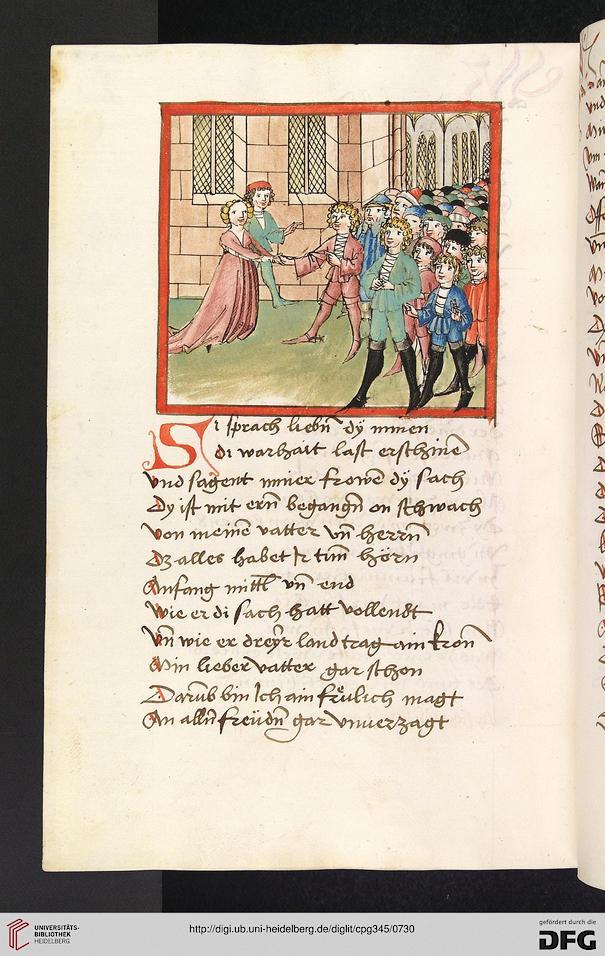 Si sprach liebn̄ dÿ minen
di warhait last erschinē
vnd sagent miner frowē dÿ sach
Dy ist mit ern̄ begangn̄ on schwach
von meinē vatter vn̄ herrn̄
Dz alles habet Ir tun̄ hörn
Anfang mittl vn̄ end
Wie er di sach hatt vollendt
Vn̄ wie er dreÿr land trag ain kron
Min lieber vatter gar schon
Darūb bin Ich ain frälich magt
An alln̄ freüdn̄ gar vnuerzagt
UNIVERSITÄTS-
BIBLIOTHEK
HEIDELBERG
http://digi.ub.uni-heidelberg.de/diglit/cpg345/0730
gefördert durch die
DFG